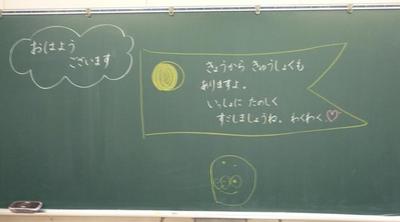 おはよう
ございます
きょうから きゅうしょくも
ありますよ。
いっしょに たのしく
すごしましょうね。わくわく♡